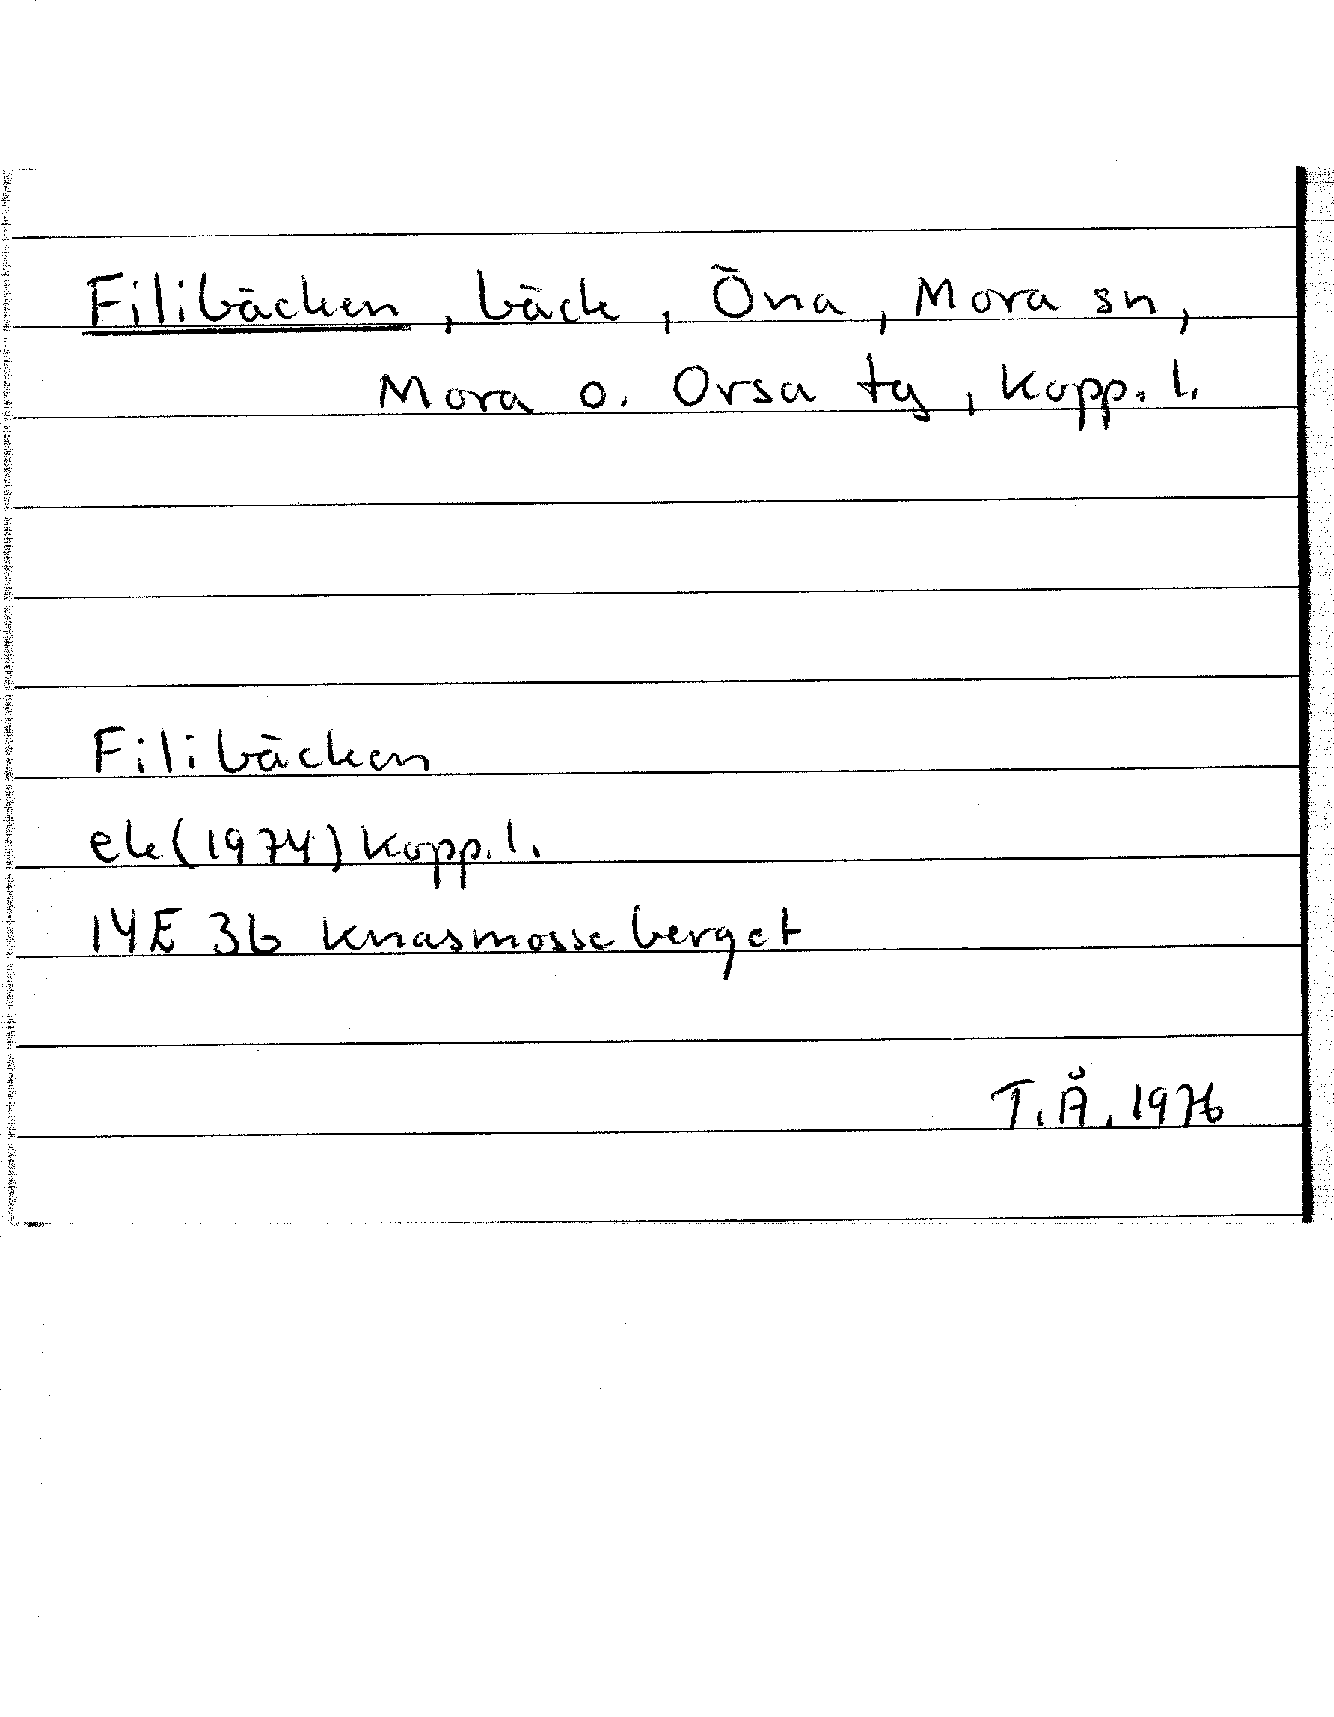 Filibäcken, bäck, Öna, Mora sn,
Mora o. Orsa tg, Kopp. l.
Filibäcken
ek (1974) Kopp. l.
14E 3b Knasmosseberget
T.Å. 1976